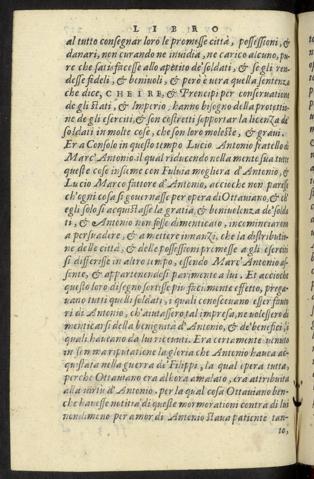 LIBRO
al tutto consegnar loro le promesse città, possessioni, &
danari, non curando ne inuidia, ne carico alcuno, pu
re che satisfacesse allo apetito de'soldati, & se gli ren-
desse fideli, & beniuoli, & però è uera quella sentenza
che dice, CHE I RE, & Prencipi per conseruatione
de gli stati, & Imperio, hanno bisogno della protettio
ne de gli eserciti, & son costretti sopportar la licenza de'
soldati in molte cose, che son loro moleste, & graui.
Era Consolo in questo tempo Lucio Antonio fratello di
Marc'Antonio. il qual riducendo nella mente sua tutte
queste cose insieme con Fuluia mogliera d'Antonio, &
Lucio Marco fattore d'Antonio, accioche non paresse
ch'ogni cosa si gouernasse per opera di Ottauiano, & ch'
egli solo si acquistasse la gratia, & beniuolenza de'solda
ti, & Antonio non fosse dimenticato, incominciarono
a persuadere, & a mettere innanzi, che la distributio-
ne delle città, & delle possessioni promesse a gli eserciti
si differisse in altro tempo, essendo Marc'Antonio as-
sente, & appartenendosi parimente a lui. Et accioche
questo loro disegno sortisse piu facilmente effetto, prega-
uano tutti quelli soldati, i quali conosceuano esser fauto
ri di Antonio, ch'aiutassero tal impresa, ne uolessero di
menticarsi della benignità d'Antonio, & de'benefici, i
quali haueano da lui riceuuti. Era certamente uenuto
in somma riputatione la gloria che Antonio hauea ac-
quistata nella guerra di Filippi, la qual opera tutta,
perche Ottauiano era allhora amalato, era attribuita
alla uirtù d'Antonio. per la qual cosa Ottauiano ben-
che hauesse notitia di queste mormorationi contra di lui
nondimeno per amor di Antonio staua patiente tan-
to,